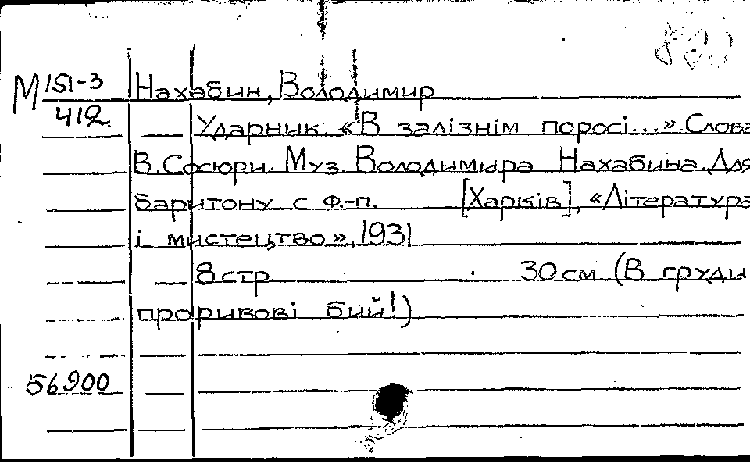 М 151-3 Нахабин, Володимир
412
Ударник. «В залізнім поросі...» Слова
В. Сосюри. Муз. Володимира Нахабина. Для
баритону с ф.-п. [Харків], «Література
і мистецтво», 1931
8 стр 30 см (В груди
прориві бий!)
56900